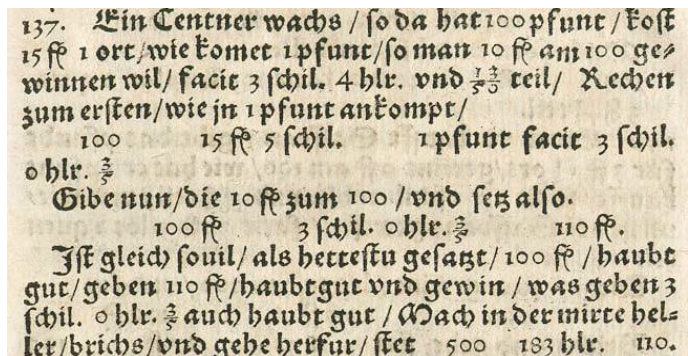 137. Ein Centner wachs / so da hat 100 pfunt / kost
15 fl 1 ort / wie komet 1 pfunt / so man 10 fl am 100 ge⸗
winnen wil / facit 3 schil. 4 hlr. vnd 13/50 teil / Rechen
zum ersten / wie jn 1 pfunt ankompt /
100 15 fl 5 schil. 1 pfunt facit 3 schil.
0 hlr. 3/5
Gibe nun / die 10 fl zum 100 / vnd setz also.
100 fl 3 schil. 0 hlr. 3/5 110 fl.
Ist gleich souil / als hettestu gesatzt / 100 fl / haubt
gut / geben 110 fl / haubtgut vnd gewin / was geben 3
schil. 0 hlr. 3/5 auch haubt gut / Mach in der mitte hel⸗
ler / brichs / vnd gehe herfur / stet 500 183 hlr. 110.